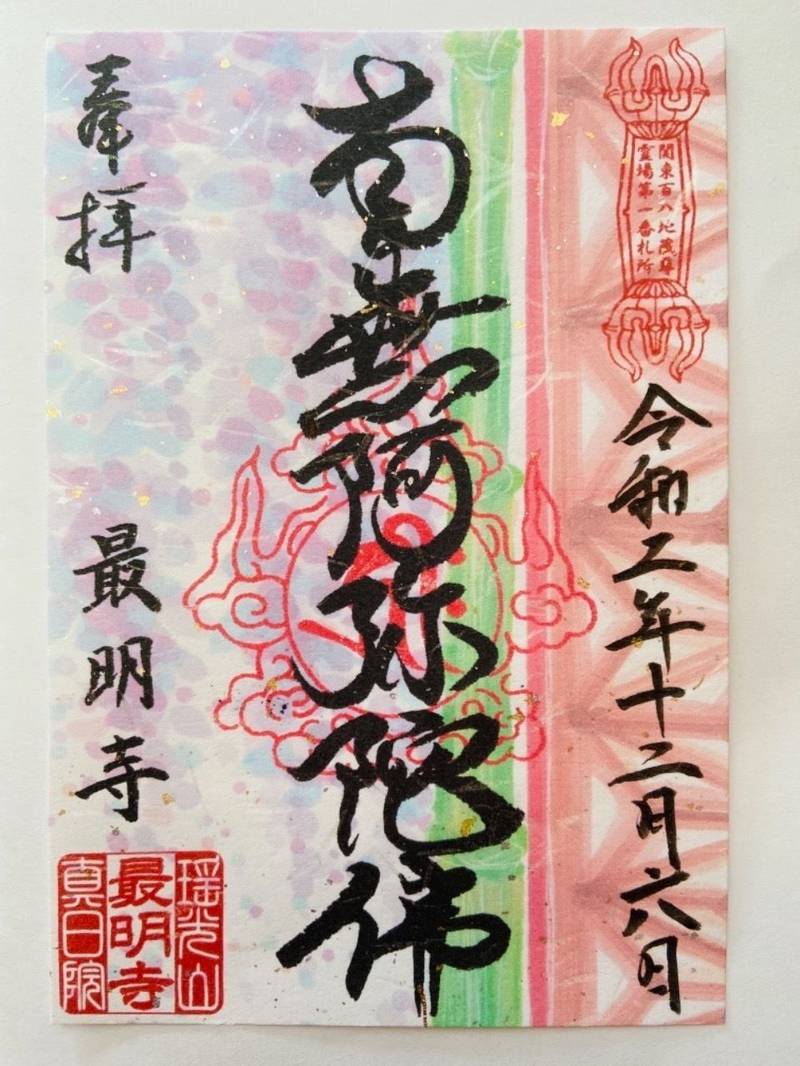 関東百八地蔵尊
霊場第一番札所
令和二年十二月六日
南無阿弥陀佛
奉拝
最明寺
瑶光山
最明寺
真日院